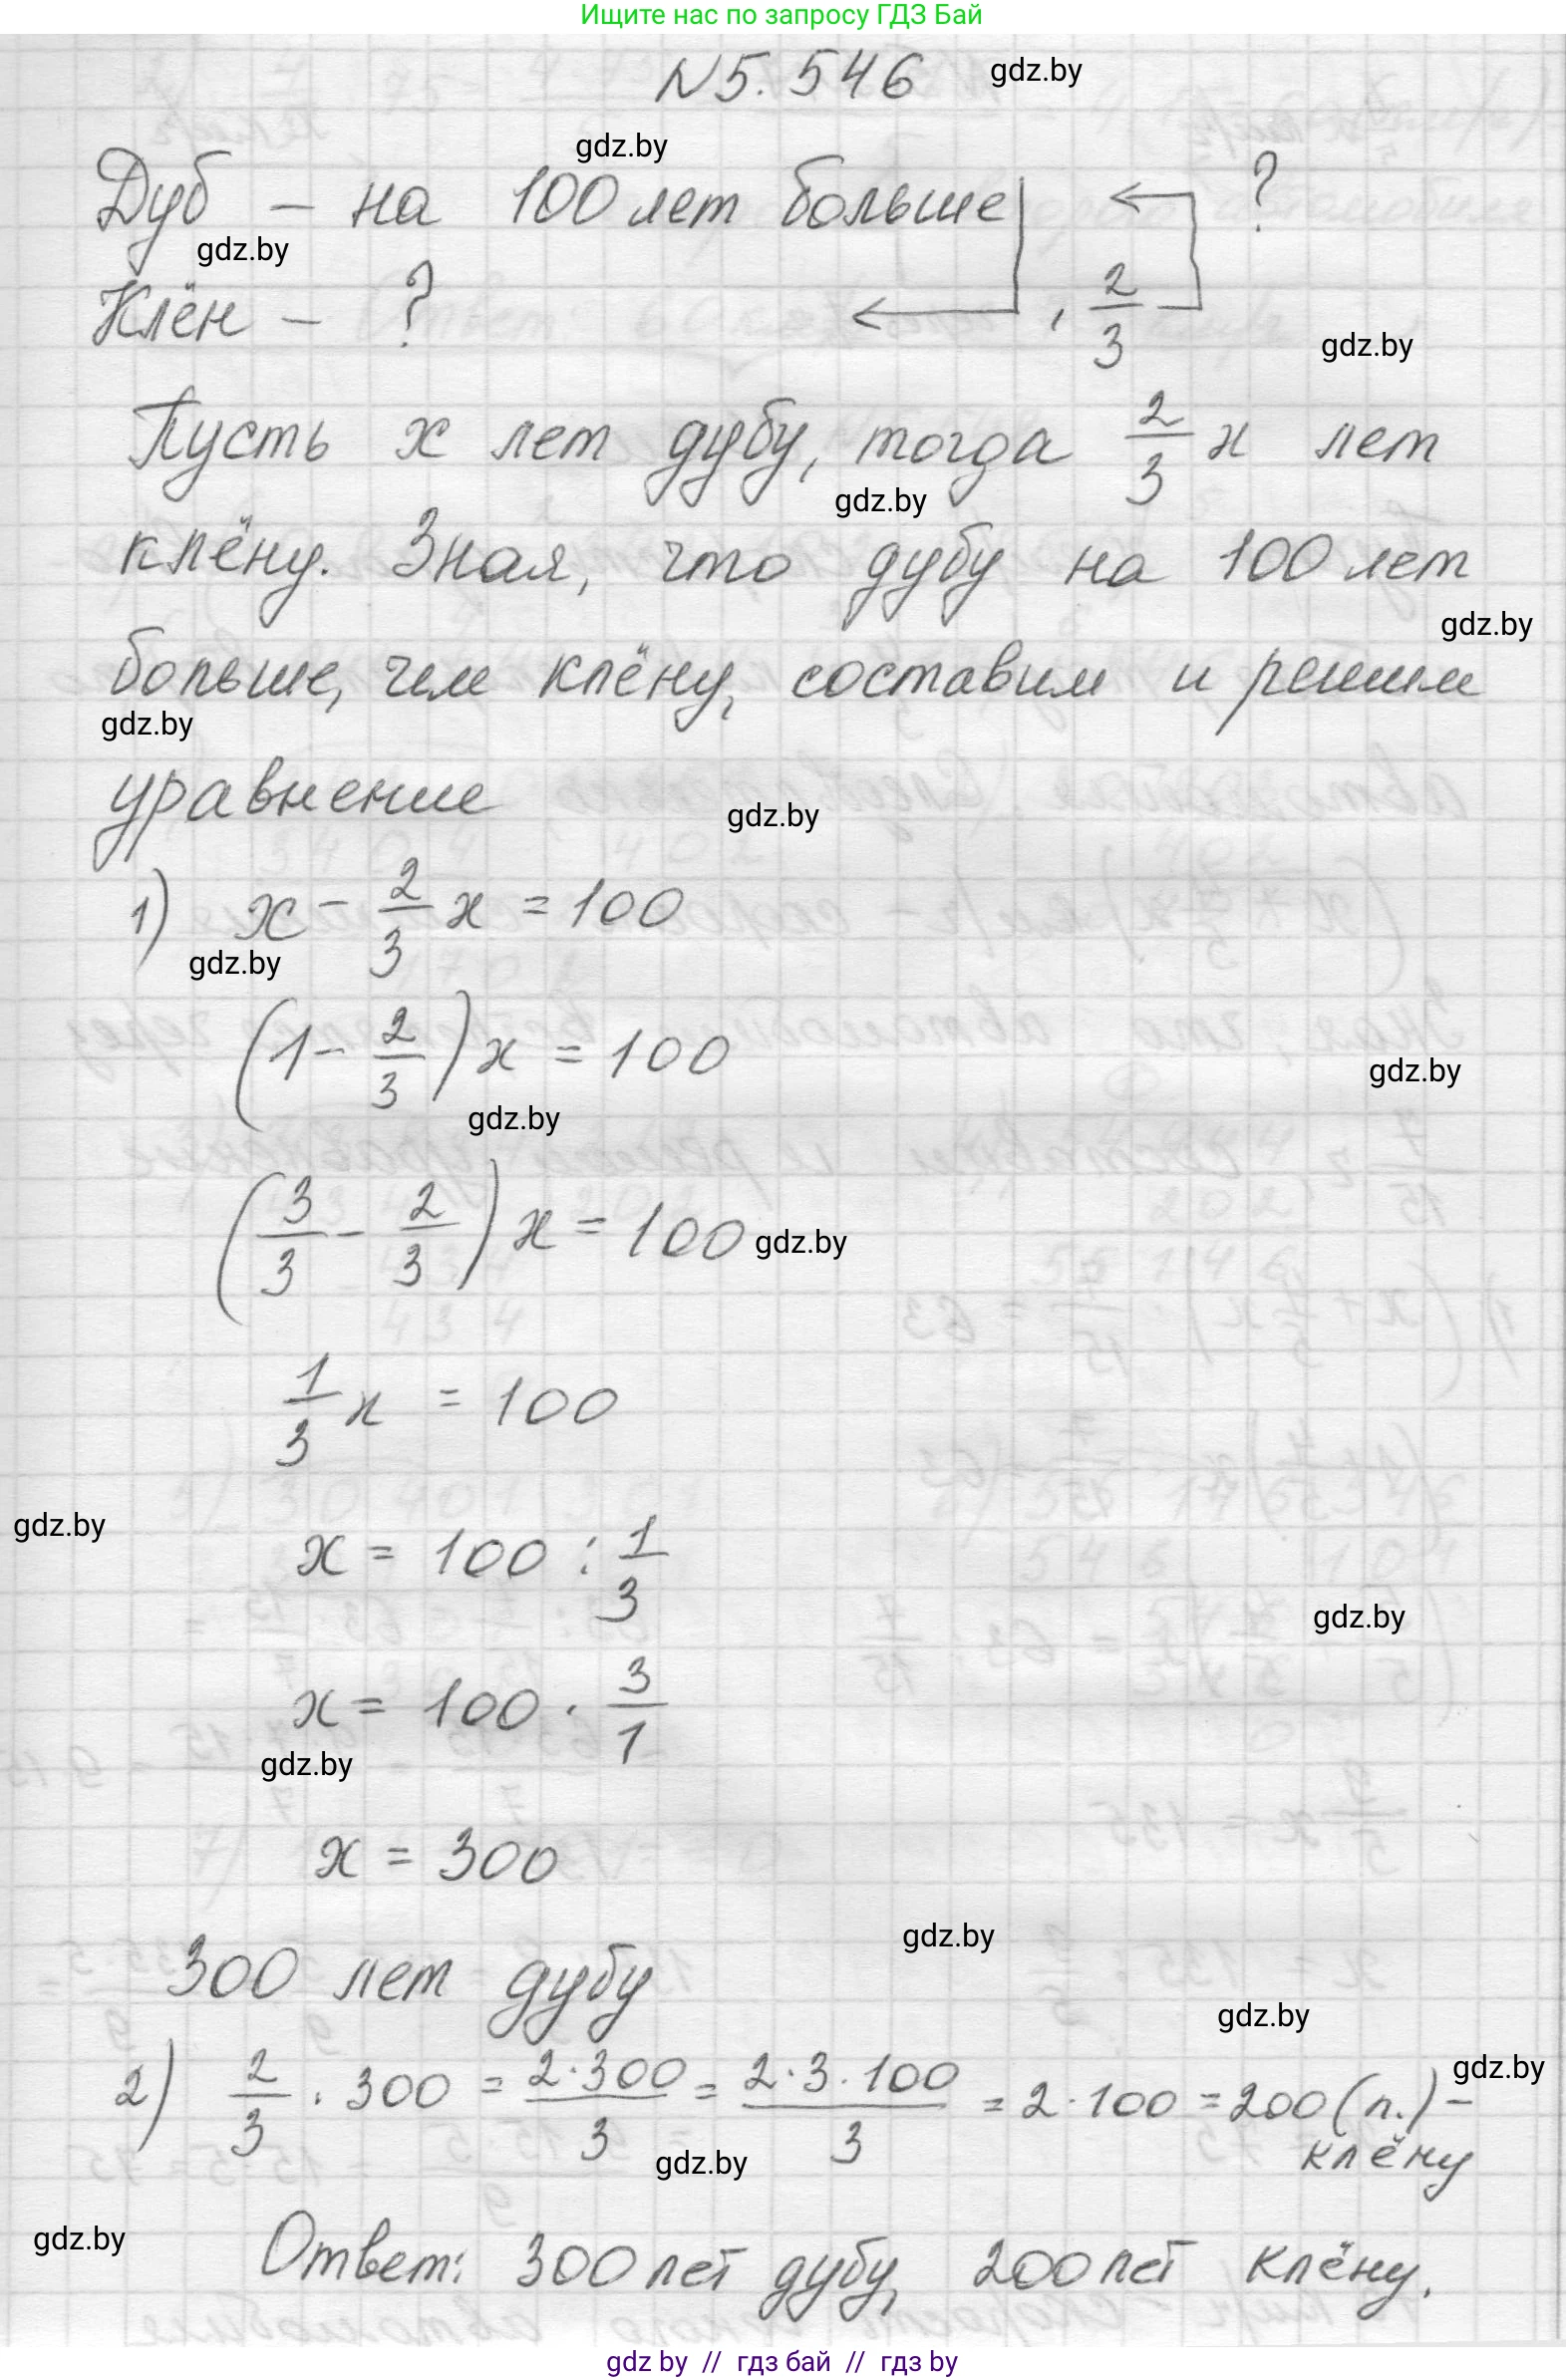 Ищите нас по запросу ГДЗ Бай
N5.546 gdz.by
gdz.by
Дуб – на 100 лет больше ?
gdz.by
Клён – ? , 2/3
gdz.by
Пусть x лет дубу, тогда 2/3 x лет
gdz.by
клёну. Зная, что дубу на 100 лет
gdz.by
больше, чем клёну, составим и решим
gdz.by
уравнение
gdz.by
1) x - 2/3 x = 100
gdz.by
(1 - 2/3) x = 100
gdz.by
gdz.by
(3/3 - 2/3) x = 100 gdz.by
1/3 x = 100
gdz.by
x = 100 : 1/3
gdz.by
x = 100 · 3/1
gdz.by
x = 300
gdz.by
300 лет дубу
gdz.by
gdz.by
2) 2/3 · 300 = 2·300/3 = 2·3·100/3 = 2·100 = 200 (л.) –
клёну
gdz.by
gdz.by
Ответ: 300 лет дубу, 200 лет клёну.
gdz by // гдз бай // гдз by